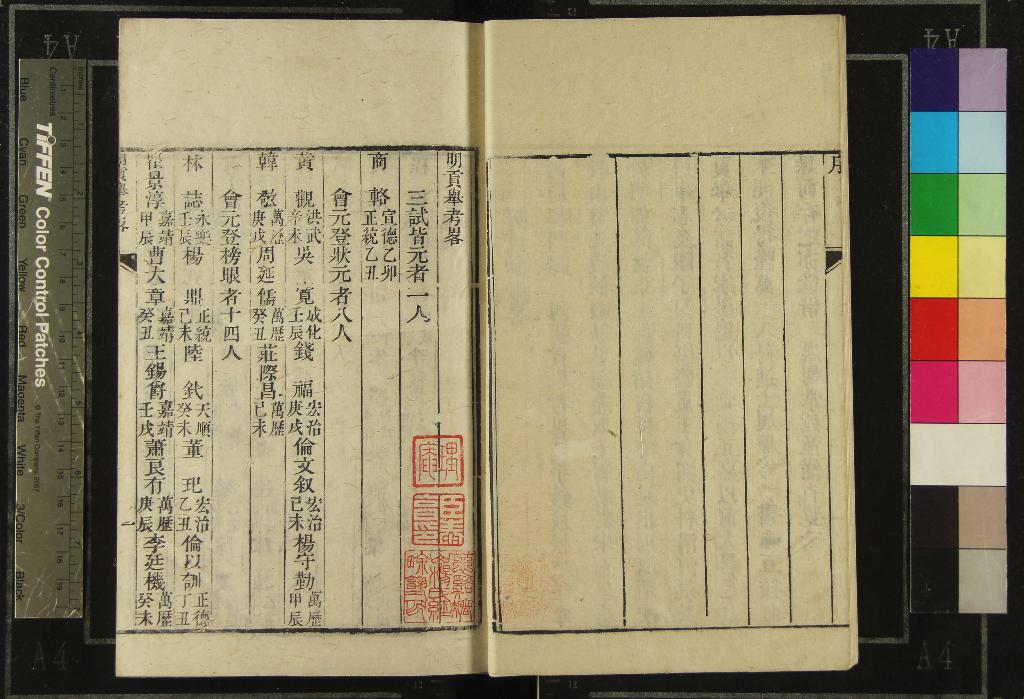 序
明貢舉考畧
三試皆元者一人
商輅宣德乙卯正統乙丑
會元登狀元者八人
黃觀洪武辛未吳寬成化壬辰錢福宏治庚戌倫文叙宏治己未楊守勤萬歷甲辰
韓敬萬歷庚戌周延儒萬歷癸丑莊際昌萬歷己未
會元登榜眼者十四人
林誌永樂壬辰楊鼎正統己未陸釴天順癸未董玘宏治乙丑倫以訓正德丁丑
瞿景淳嘉靖甲辰曹大章嘉靖癸丑王錫爵嘉靖壬戌蕭良有萬歷庚辰李廷機萬歷癸未
明貢舉考畧
一
A4
A4
A4
A4
TIFFEN Color Control Patches
© The Tiffen Company, 2007
Centimetres
Inches
Blue
Cyan
Green
Yellow
Red
Magenta
White
3/Color
Black